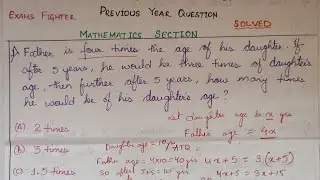 EXAMS FIGHTER
PREVIOUS YEAR QUESTION
SOLVED
MATHEMATICS SECTION
Father is four times the age of his daughter. If
after 5 years, he would be three times of daughter's
age, then further after 5 years, how many times
he would be of his daughter's age?
let daughter age is x yrs
(a) 2 times
Father age = 4x
Daughter age = 10 yrs
ATQ,
(b) 3 times
Father age = 4×10 = 40 yrs
4x+5 = 3(x+5)
(c) 1.5 times
so after 5+5 = 10 yrs
4x+5 = 3x+15